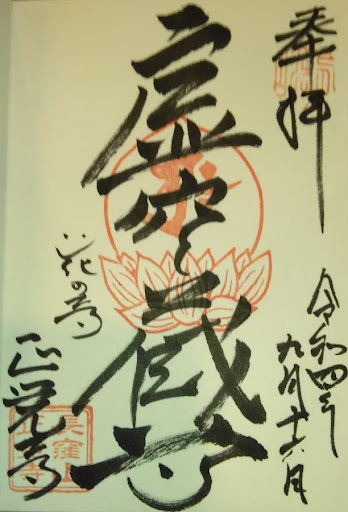 奉拝
令和四年
九月十六日
虚空蔵尊
花の寺
正覚寺